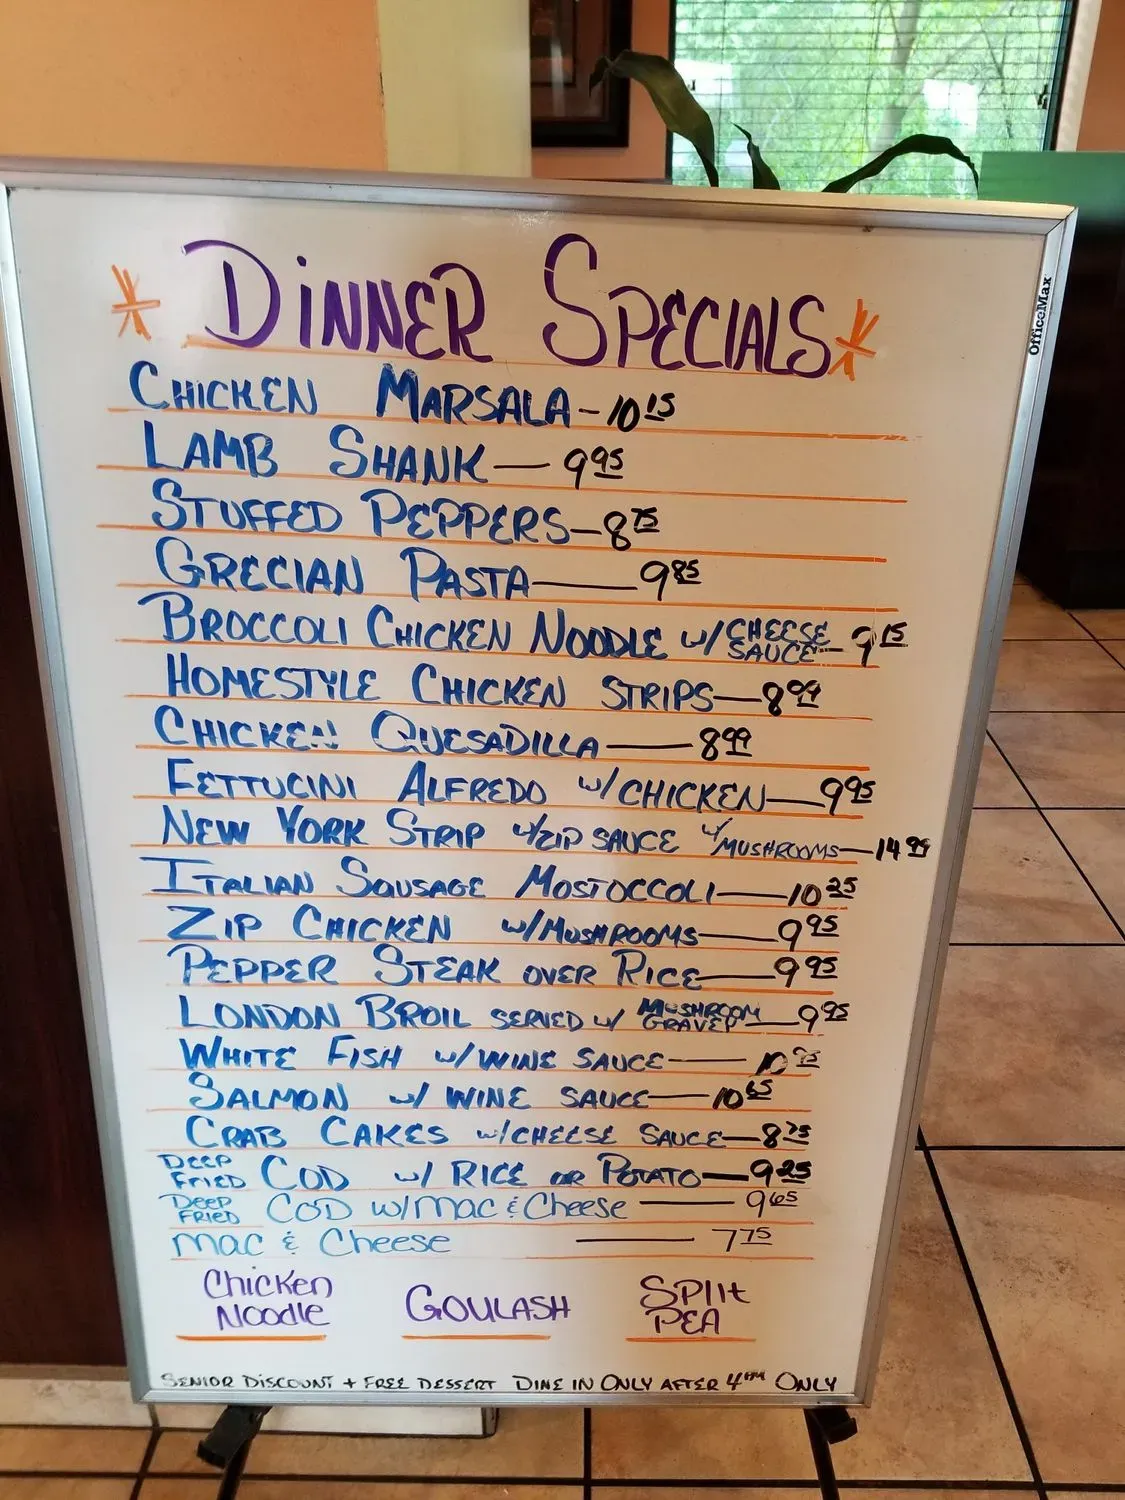 * DINNER SPECIALS *
OfficeMax
CHICKEN MARSALA - 10 15
LAMB SHANK - 9 95
STUFFED PEPPERS - 8 75
GRECIAN PASTA - 9 85
BROCCOLI CHICKEN NOODLE w/ CHEESE SAUCE - 9 15
HOMESTYLE CHICKEN STRIPS - 8 99
CHICKEN QUESADILLA - 8 99
FETTUCINI ALFREDO w/ CHICKEN - 9 95
NEW YORK STRIP w/ ZIP SAUCE w/ MUSHROOMS - 14 99
ITALIAN SAUSAGE MOSTOCCOLI - 10 25
ZIP CHICKEN w/ MUSHROOMS - 9 95
PEPPER STEAK OVER RICE - 9 95
LONDON BROIL SERVED w/ MUSHROOM GRAVEY - 9 95
WHITE FISH w/ WINE SAUCE - 10
SALMON w/ WINE SAUCE - 10 65
CRAB CAKES w/ CHEESE SAUCE - 8 75
DEEP FRIED COD w/ RICE OR POTATO - 9 25
DEEP FRIED COD w/ MAC & Cheese - 9 65
MAC & Cheese - 7 75
Chicken Noodle
GOULASH
SPlit PEA
SENIOR DISCOUNT + FREE DESSERT DINE IN ONLY AFTER 4PM ONLY